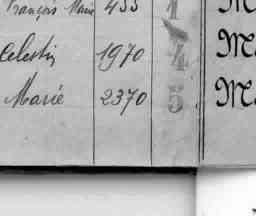 François Marie 433 1 M
Celestin 1970 4 M
Marie 2370 5 M